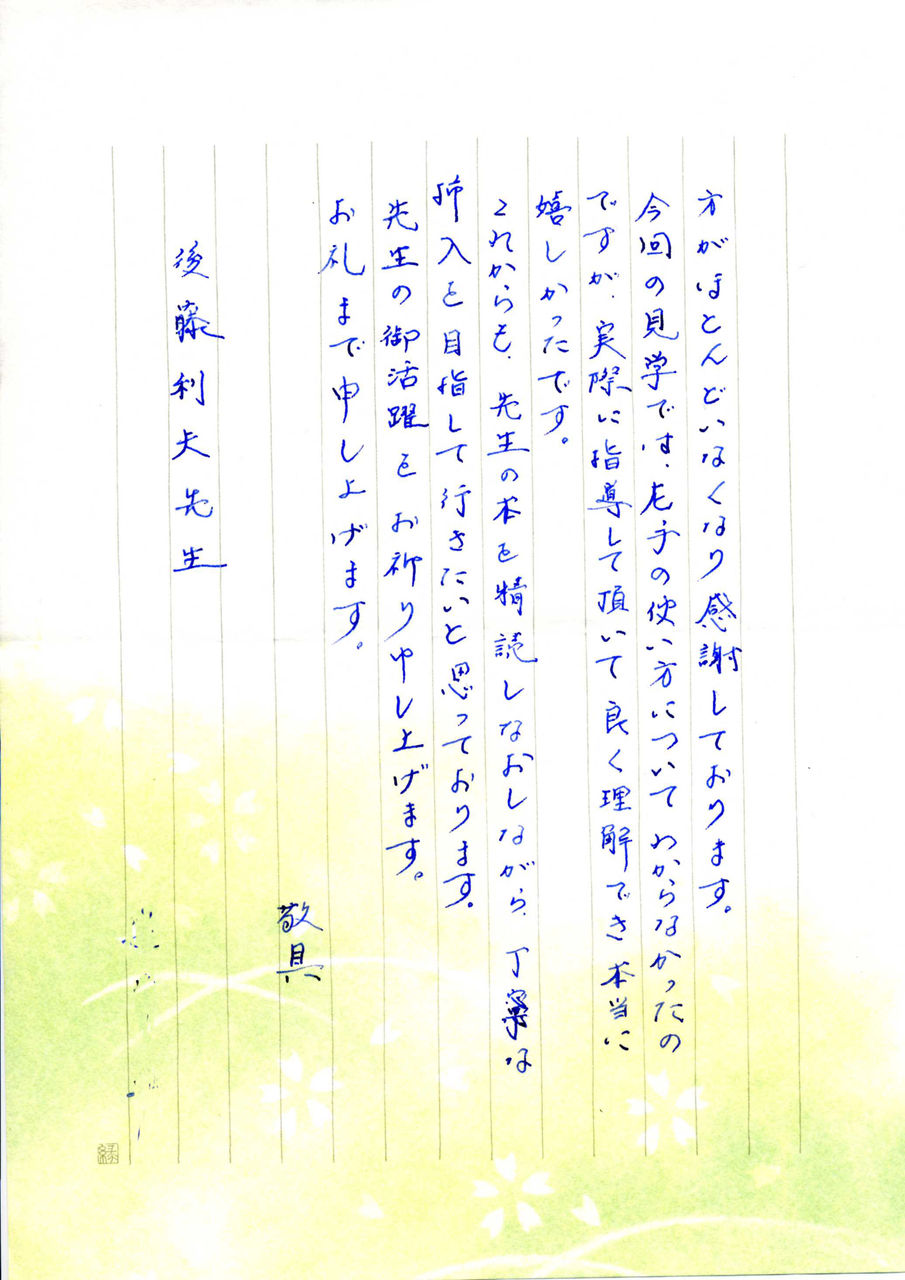 方がほとんどいなくなり感謝しております。
今回の見学では、左手の使い方についてわからなかったの
ですが、実際に指導して頂いて良く理解でき本当に
嬉しかったです。
これからも、先生の本を精読しなおしながら、丁寧な
挿入を目指して行きたいと思っております。
先生の御活躍をお祈り申し上げます。
お礼まで申し上げます。
敬具
後藤利夫先生
縁